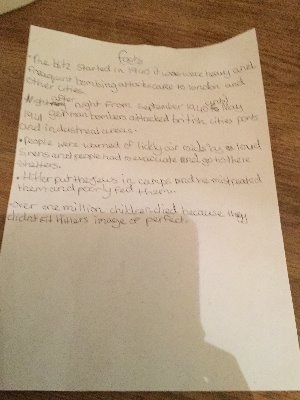 facts
• The blitz started in 1940 it was were heavy and
frequent bombing attacks came to london and
other cities.
Night after night from september 1940 until may
1941 german bombers attacked british cities ports
and industreal areas.
• People were warned of likly air raids by a loud
sirens and people had to evacuate and go to there
shelters.
• Hitler put the jews in camps and he mistreated
them and poorly fed them.
over one million children died because they
didnt fit Hitlers image of perfect.